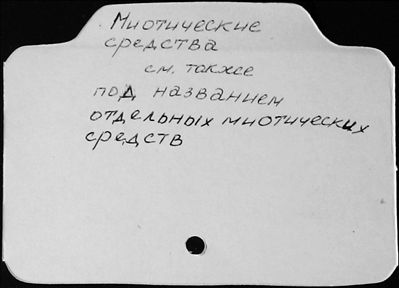 Миотические
средства
см. также
под названием
отдельных миотических
средств